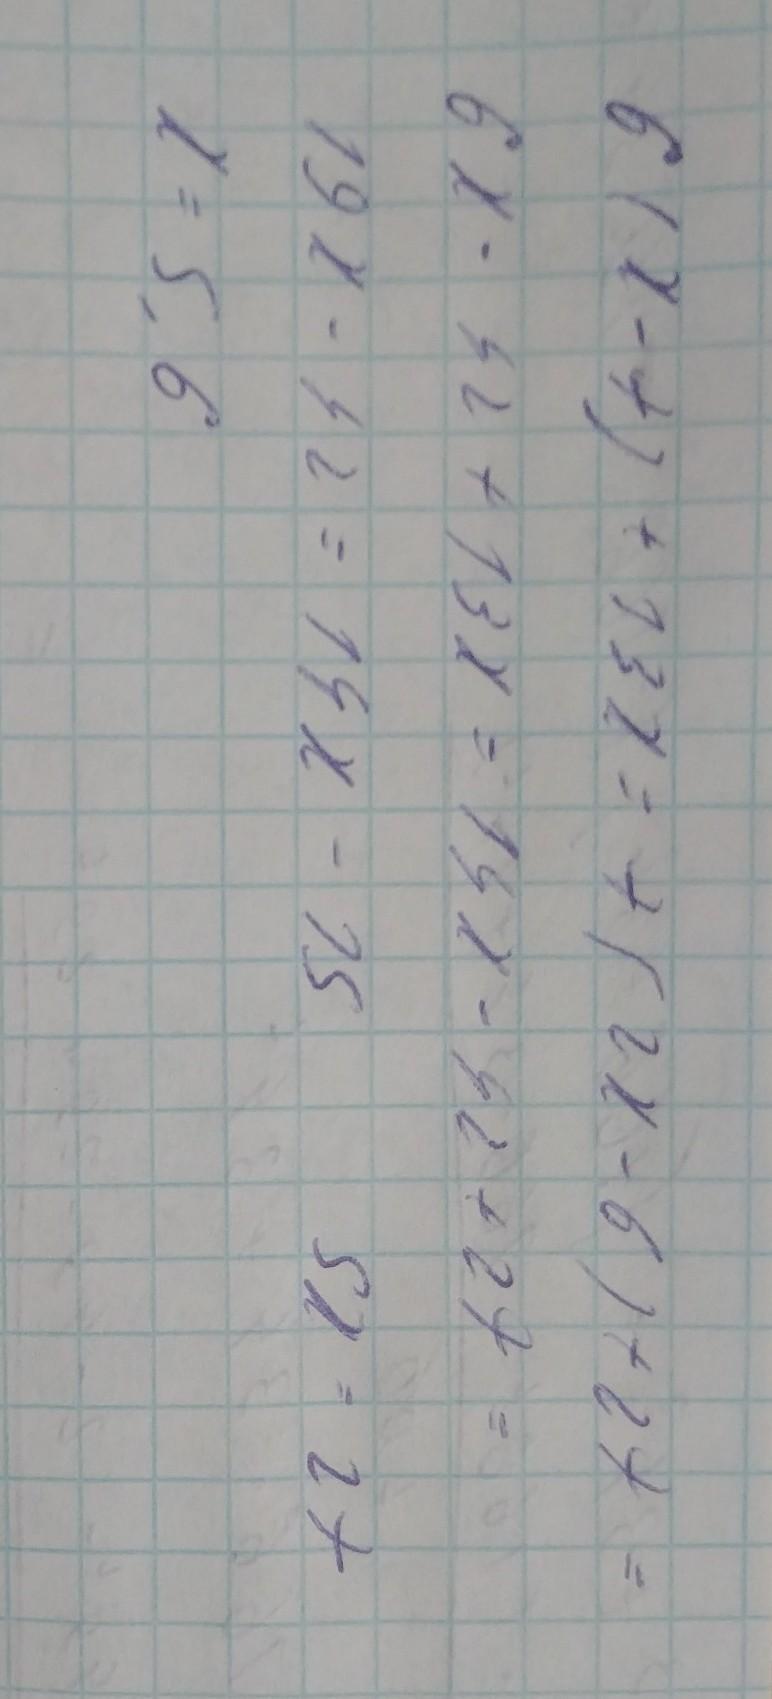 6(x-7)+13x=7(2x-6)+27=
6x-42+13x=14x-42+27=
19x-42=14x-15 5x=27
x=5,6